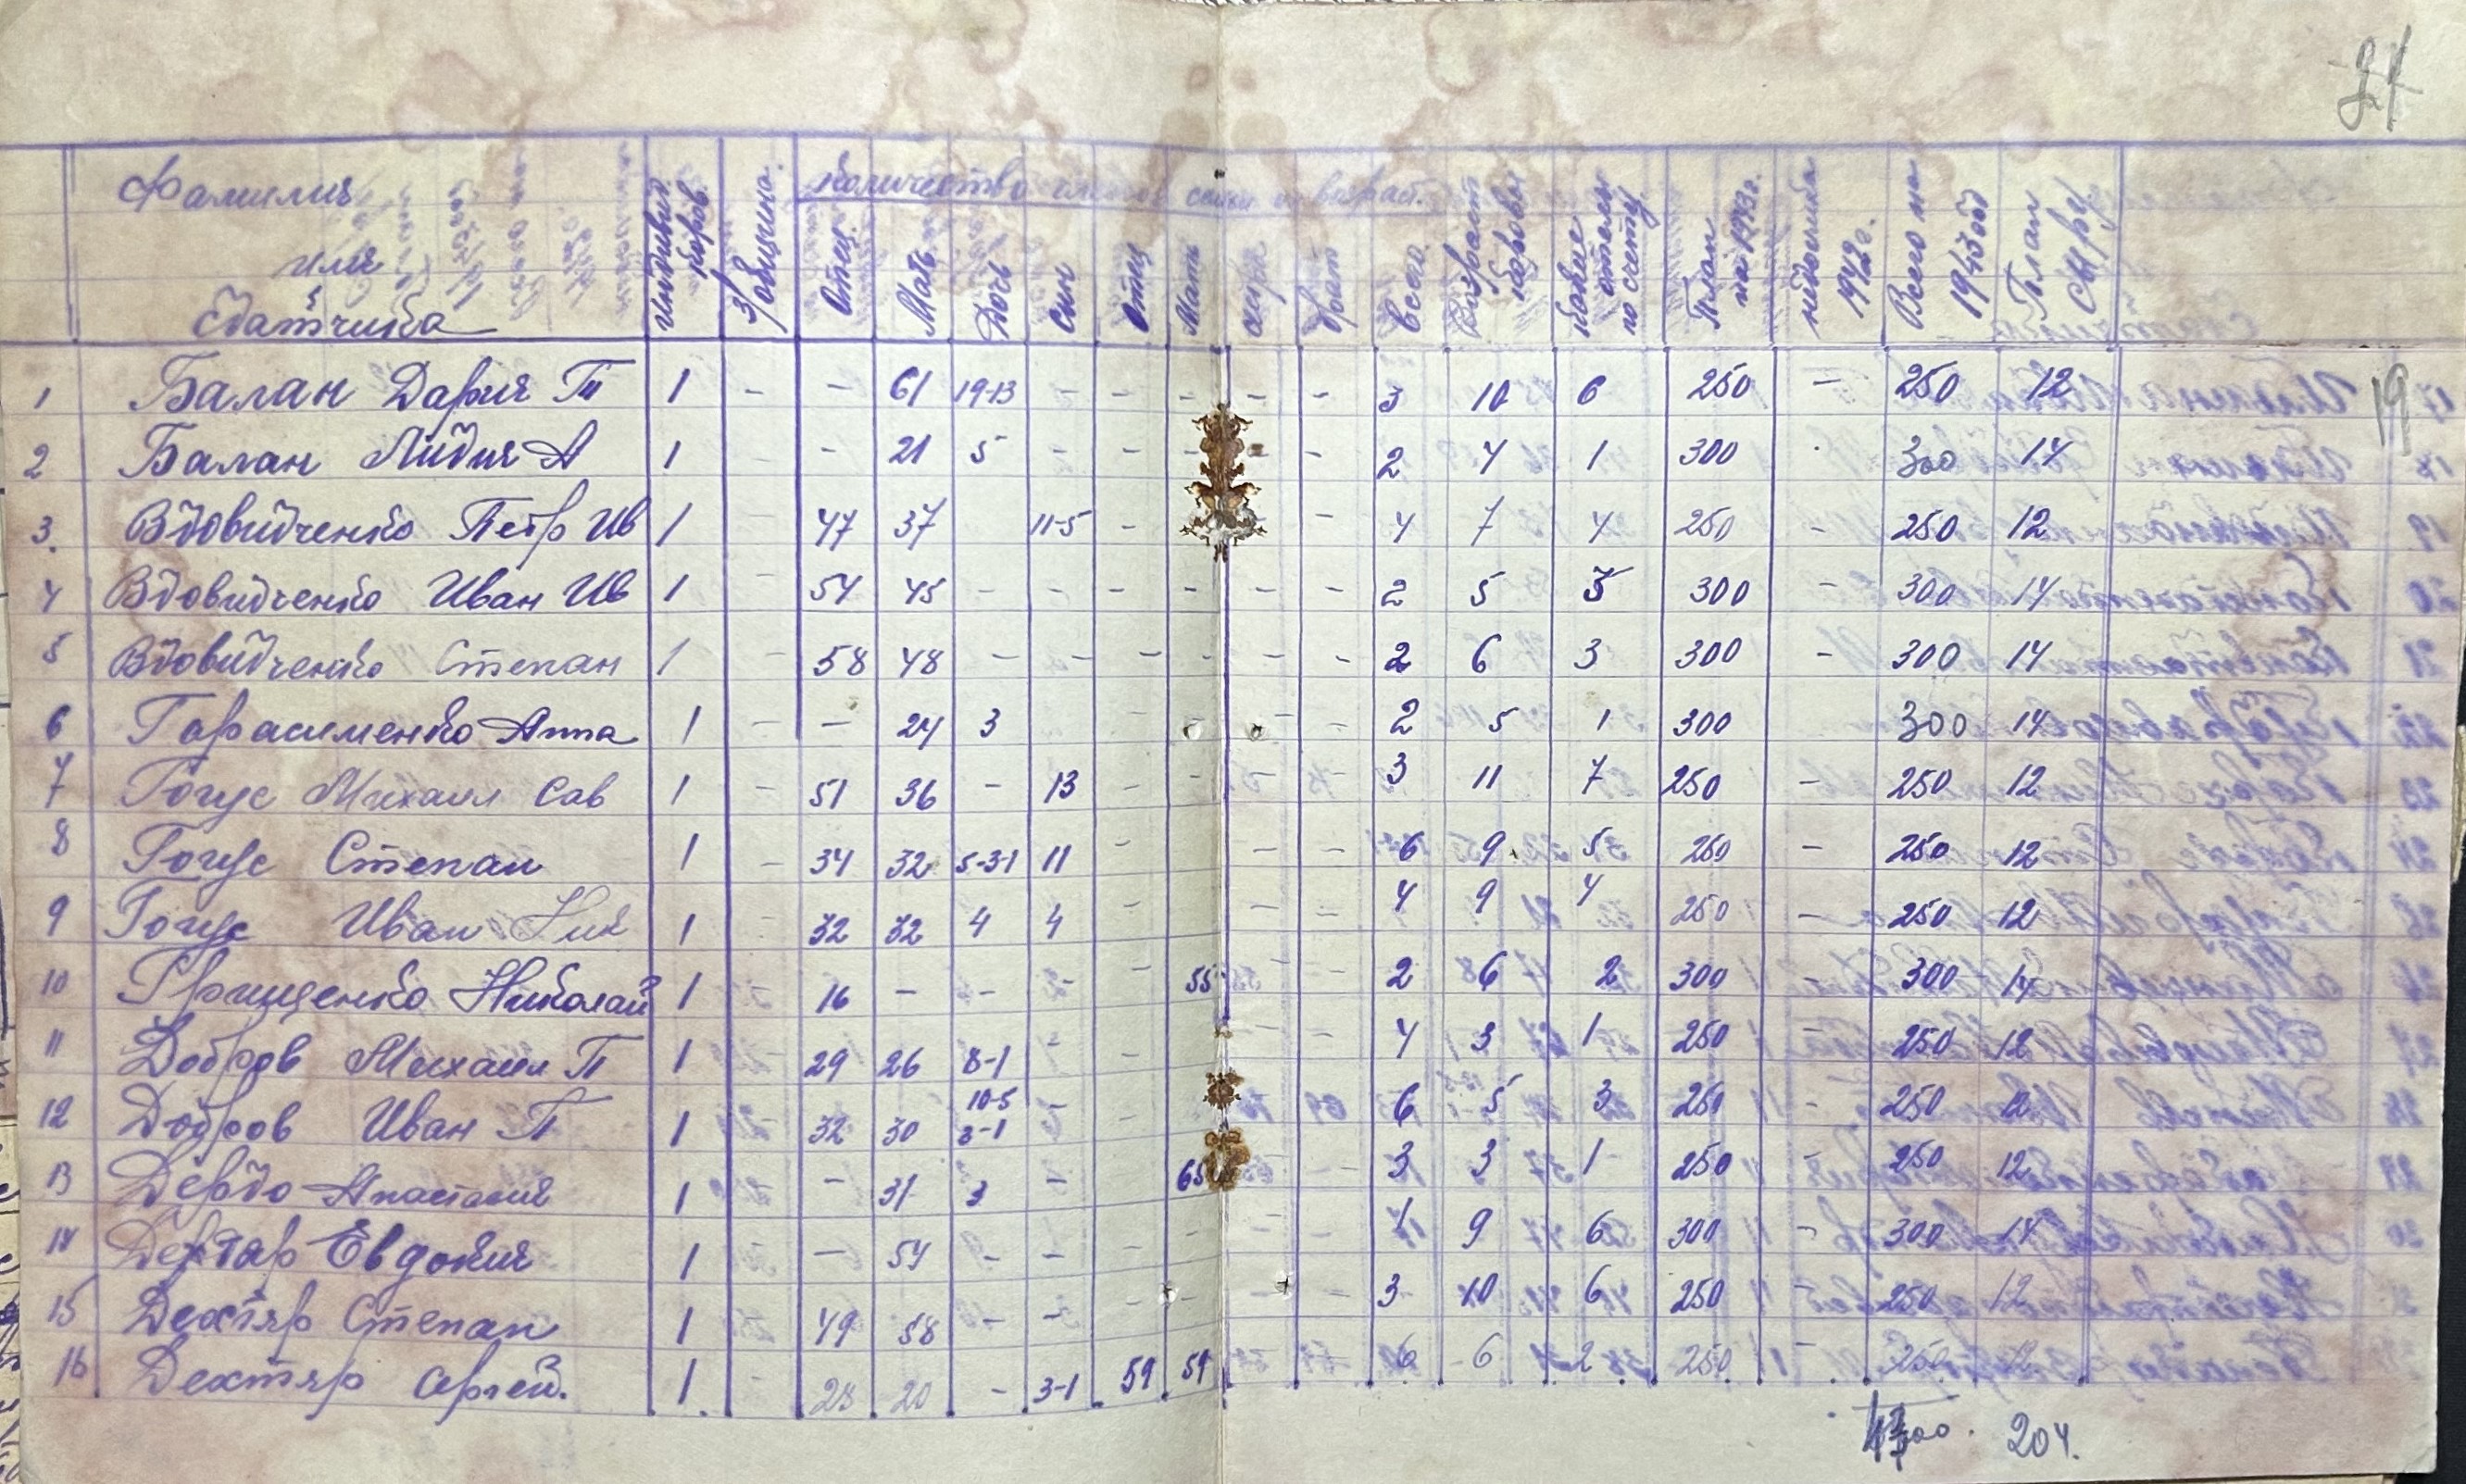 21
Фамилия
имя
Сдатчика
Индивид. коров.
Яловщина.
Количество членов семьи и возраст.
Отец
Мать
Дочь
Сын
Отец
Мать
сестра
брат
Всего
Возраст коровы
Какие отелы по счету
План на 1943г.
недоимка 1942г.
Всего на 1943год
План
19
1 Балан Дария П 1 - - 61 19-13 - - - - - 3 10 6 250 - 250 12
2 Балан Лидия А 1 - - 21 5 - - - - 2 4 1 300 300 14
3. Вдовидченко Петр Ив 1 - 47 37 11-5 - - 4 7 4 250 - 250 12
4 Вдовидченко Иван Ив 1 - 54 45 - - - - - - 2 5 3 300 - 300 14
5 Вдовидченко Степан 1 - 58 48 - - - - - - 2 6 3 300 - 300 14
6 Гарасименко Анна 1 - - 24 3 - - 2 5 1 300 300 14
7 Гогус Михаил Сав 1 - 51 36 - 13 - - - - 3 11 7 250 - 250 12
8 Гогус Степан 1 - 34 32 5-3-1 11 - - - 6 9 5 250 - 250 12
9 Гогус Иван Ник 1 - 32 32 4 4 - - - 4 9 4 250 - 250 12
10 Грищенко Николай 1 16 - - - 55 - 2 6 2 300 - 300 14
11 Добров Михаил П 1 29 26 8-1 - - - - 4 3 1 250 - 250 12
12 Добров Иван П 1 32 30 10-5 3-1 - - 6 5 3 250 - 250 12
13 Дердо Анастасия 1 - 31 3 - 65 - - 3 3 1 250 - 250 12
14 Дехтяр Евдокия 1 - 54 - - - - - - 1 9 6 300 - 300 14
15 Дехтяр Степан 1 49 58 - - - - - - 3 10 6 250 - 250 12
16 Дехтяр Сергей. 1 - 28 20 - 3-1 59 59 6 6 2 250 - 250 12
204.